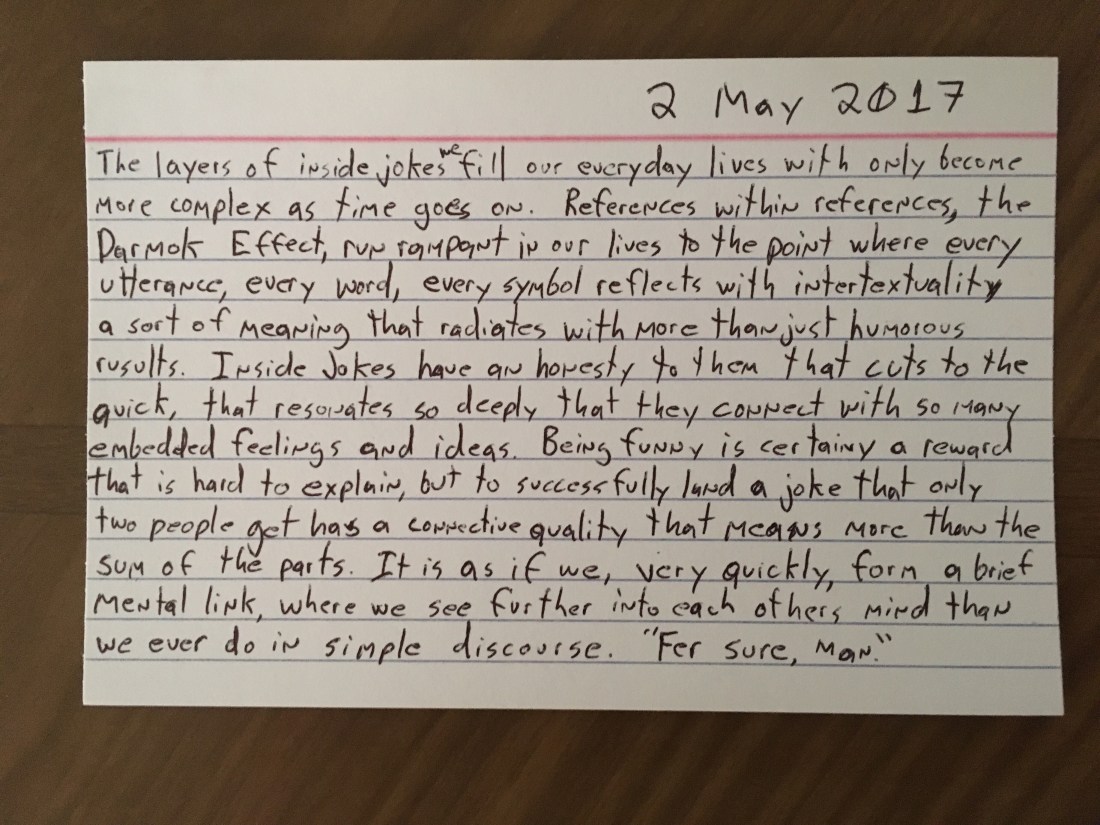 2 May 2017
The layers of inside jokes we fill our everyday lives with only become
more complex as time goes on. References within references, the
Darmok Effect, run rampant in our lives to the point where every
utterance, every word, every symbol reflects with intertextuality
a sort of meaning that radiates with more than just humorous
rusults. Inside Jokes have an honesty to them that cuts to the
quick, that resonates so deeply that they connect with so many
embedded feelings and ideas. Being funny is certainy a reward
that is hard to explain, but to successfully land a joke that only
two people get has a connective quality that means more than the
sum of the parts. It is as if we, very quickly, form a brief
mental link, where we see further into each others mind than
we ever do in simple discourse. "Fer sure, man."